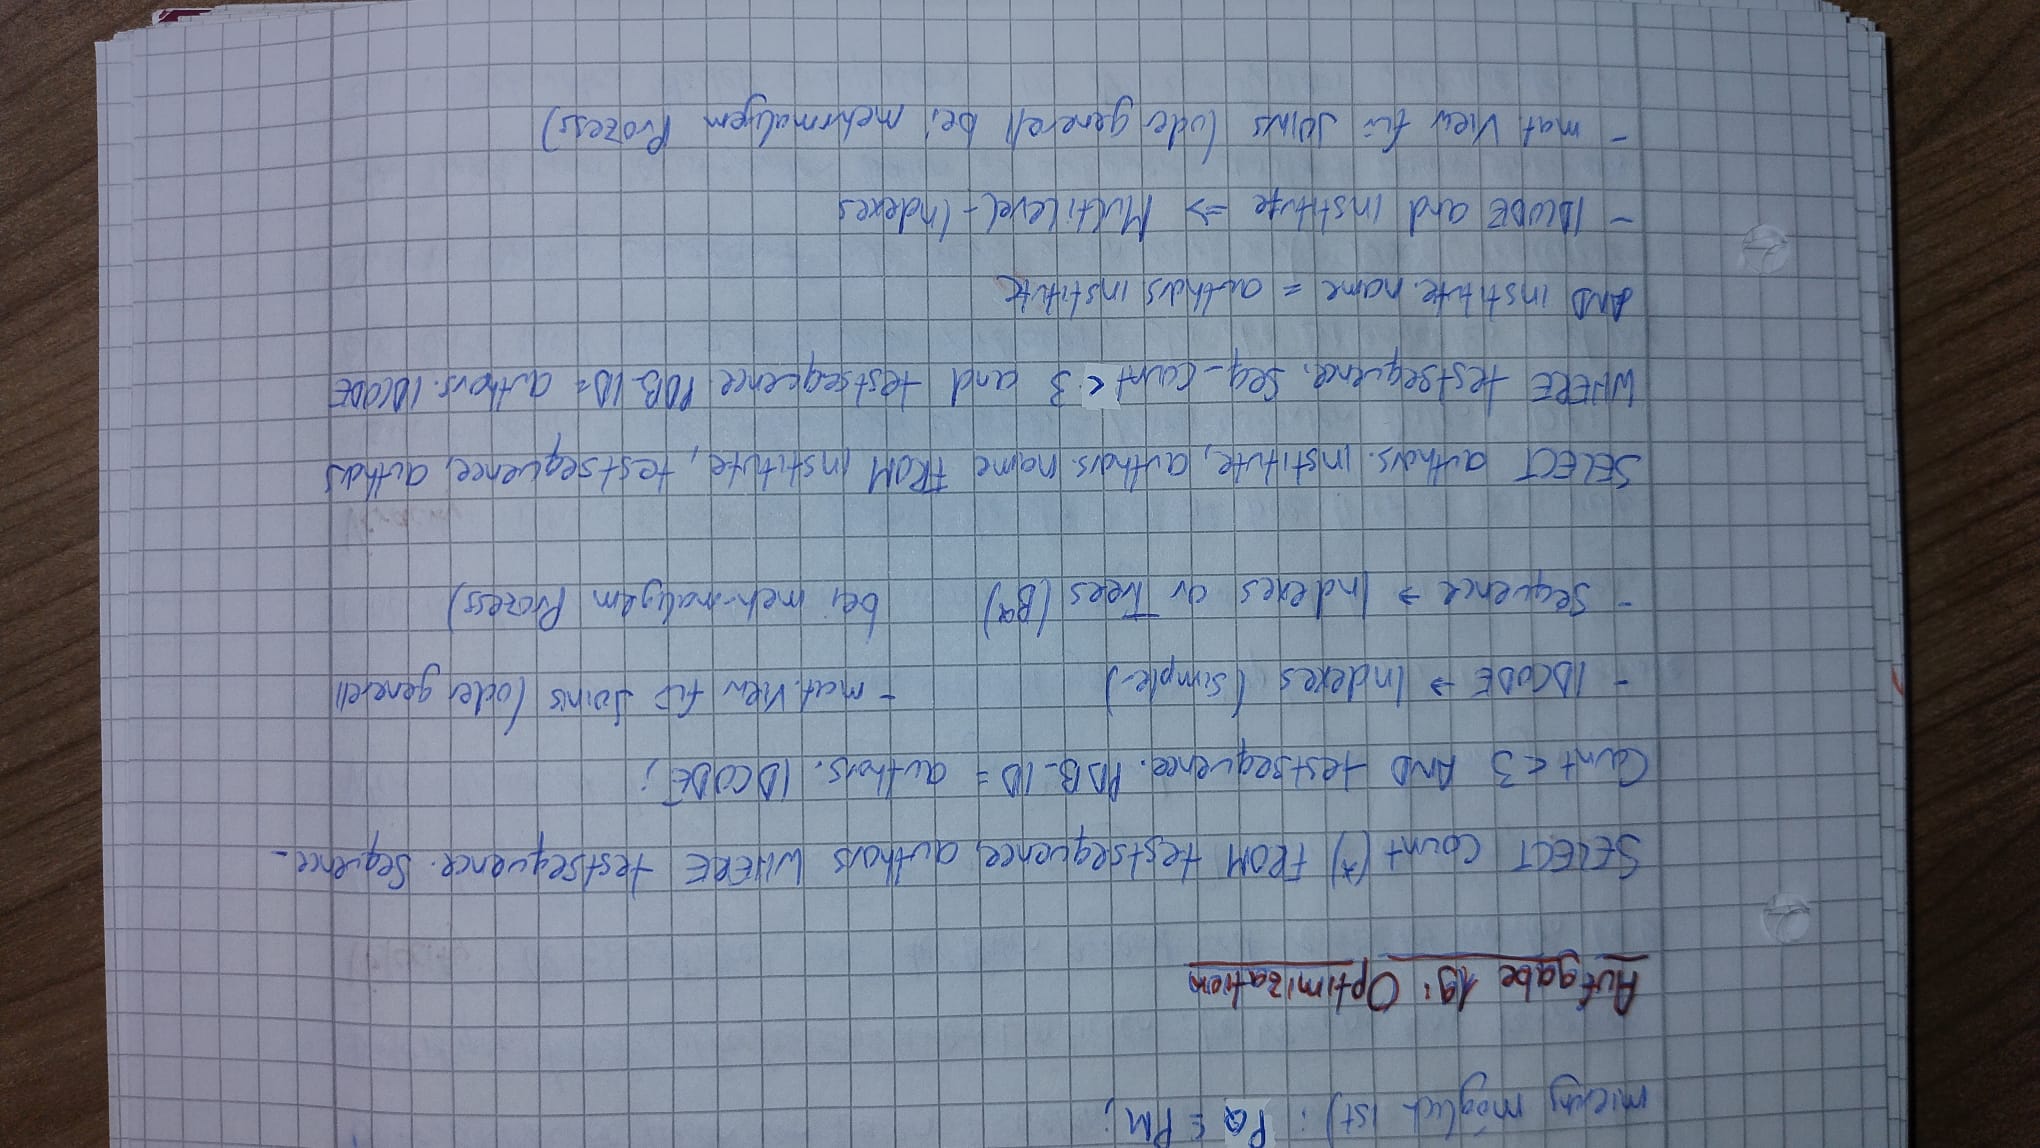 mierung möglich ist): PQ ≤ PM;
Aufgabe 19: Optimization
SELECT count (*) FROM testsequence, authors WHERE testsequence. Sequence_
Count < 3 AND testsequence. PDB_ID = authors. IDCODE;
- IDCODE → Indexes (simple)
- Sequence → Indexes or Trees (B*)
- mat. View für Joins (oder generell
bei mehrmaligem Prozess)
SELECT authors. institute, authors. name FROM institute, testsequence, authors
WHERE testsequence. Seq_count < 3 and testsequence PDB_ID = authors. IDCODE
AND institute. name = authors institute
- IDCODE and institute ⇒ Multilevel-Indexes
- mat. View für JOINS (oder generell bei mehrmaligem Prozess)